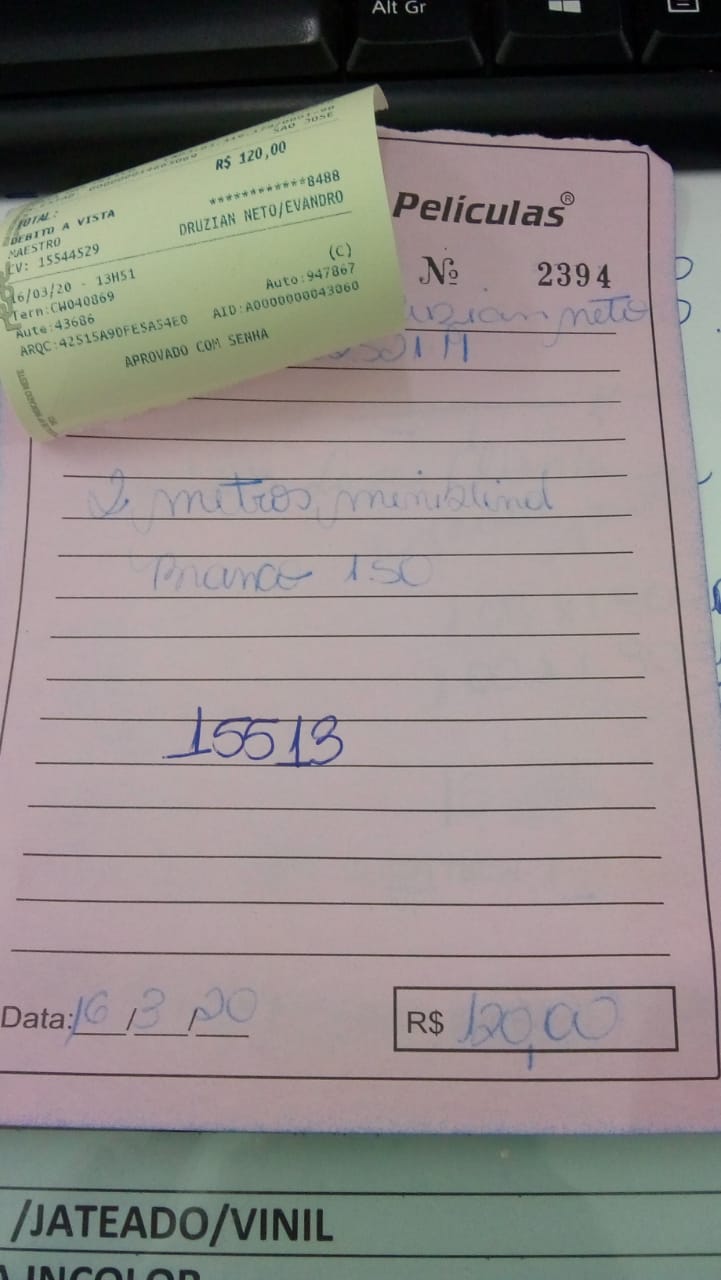 Alt Gr
SAO JOSE
R$ 120,00
TOTAL:
DEBITO A VISTA
MAESTRO
************8488
CV: 15544529
DRUZIAN NETO/EVANDRO
16/03/20 - 13H51
(C)
Term:CW040869
Auto:947867
Aute:43686
AID:A0000000043060
ARQC:42515A9DFE5A54E0
APROVADO COM SENHA
Películas®
Nº 2394
neto
2 metros miniblind
Branco 1.50
15513
Data:16/3/20
R$ 120,00
/JATEADO/VINIL
INCOLOR